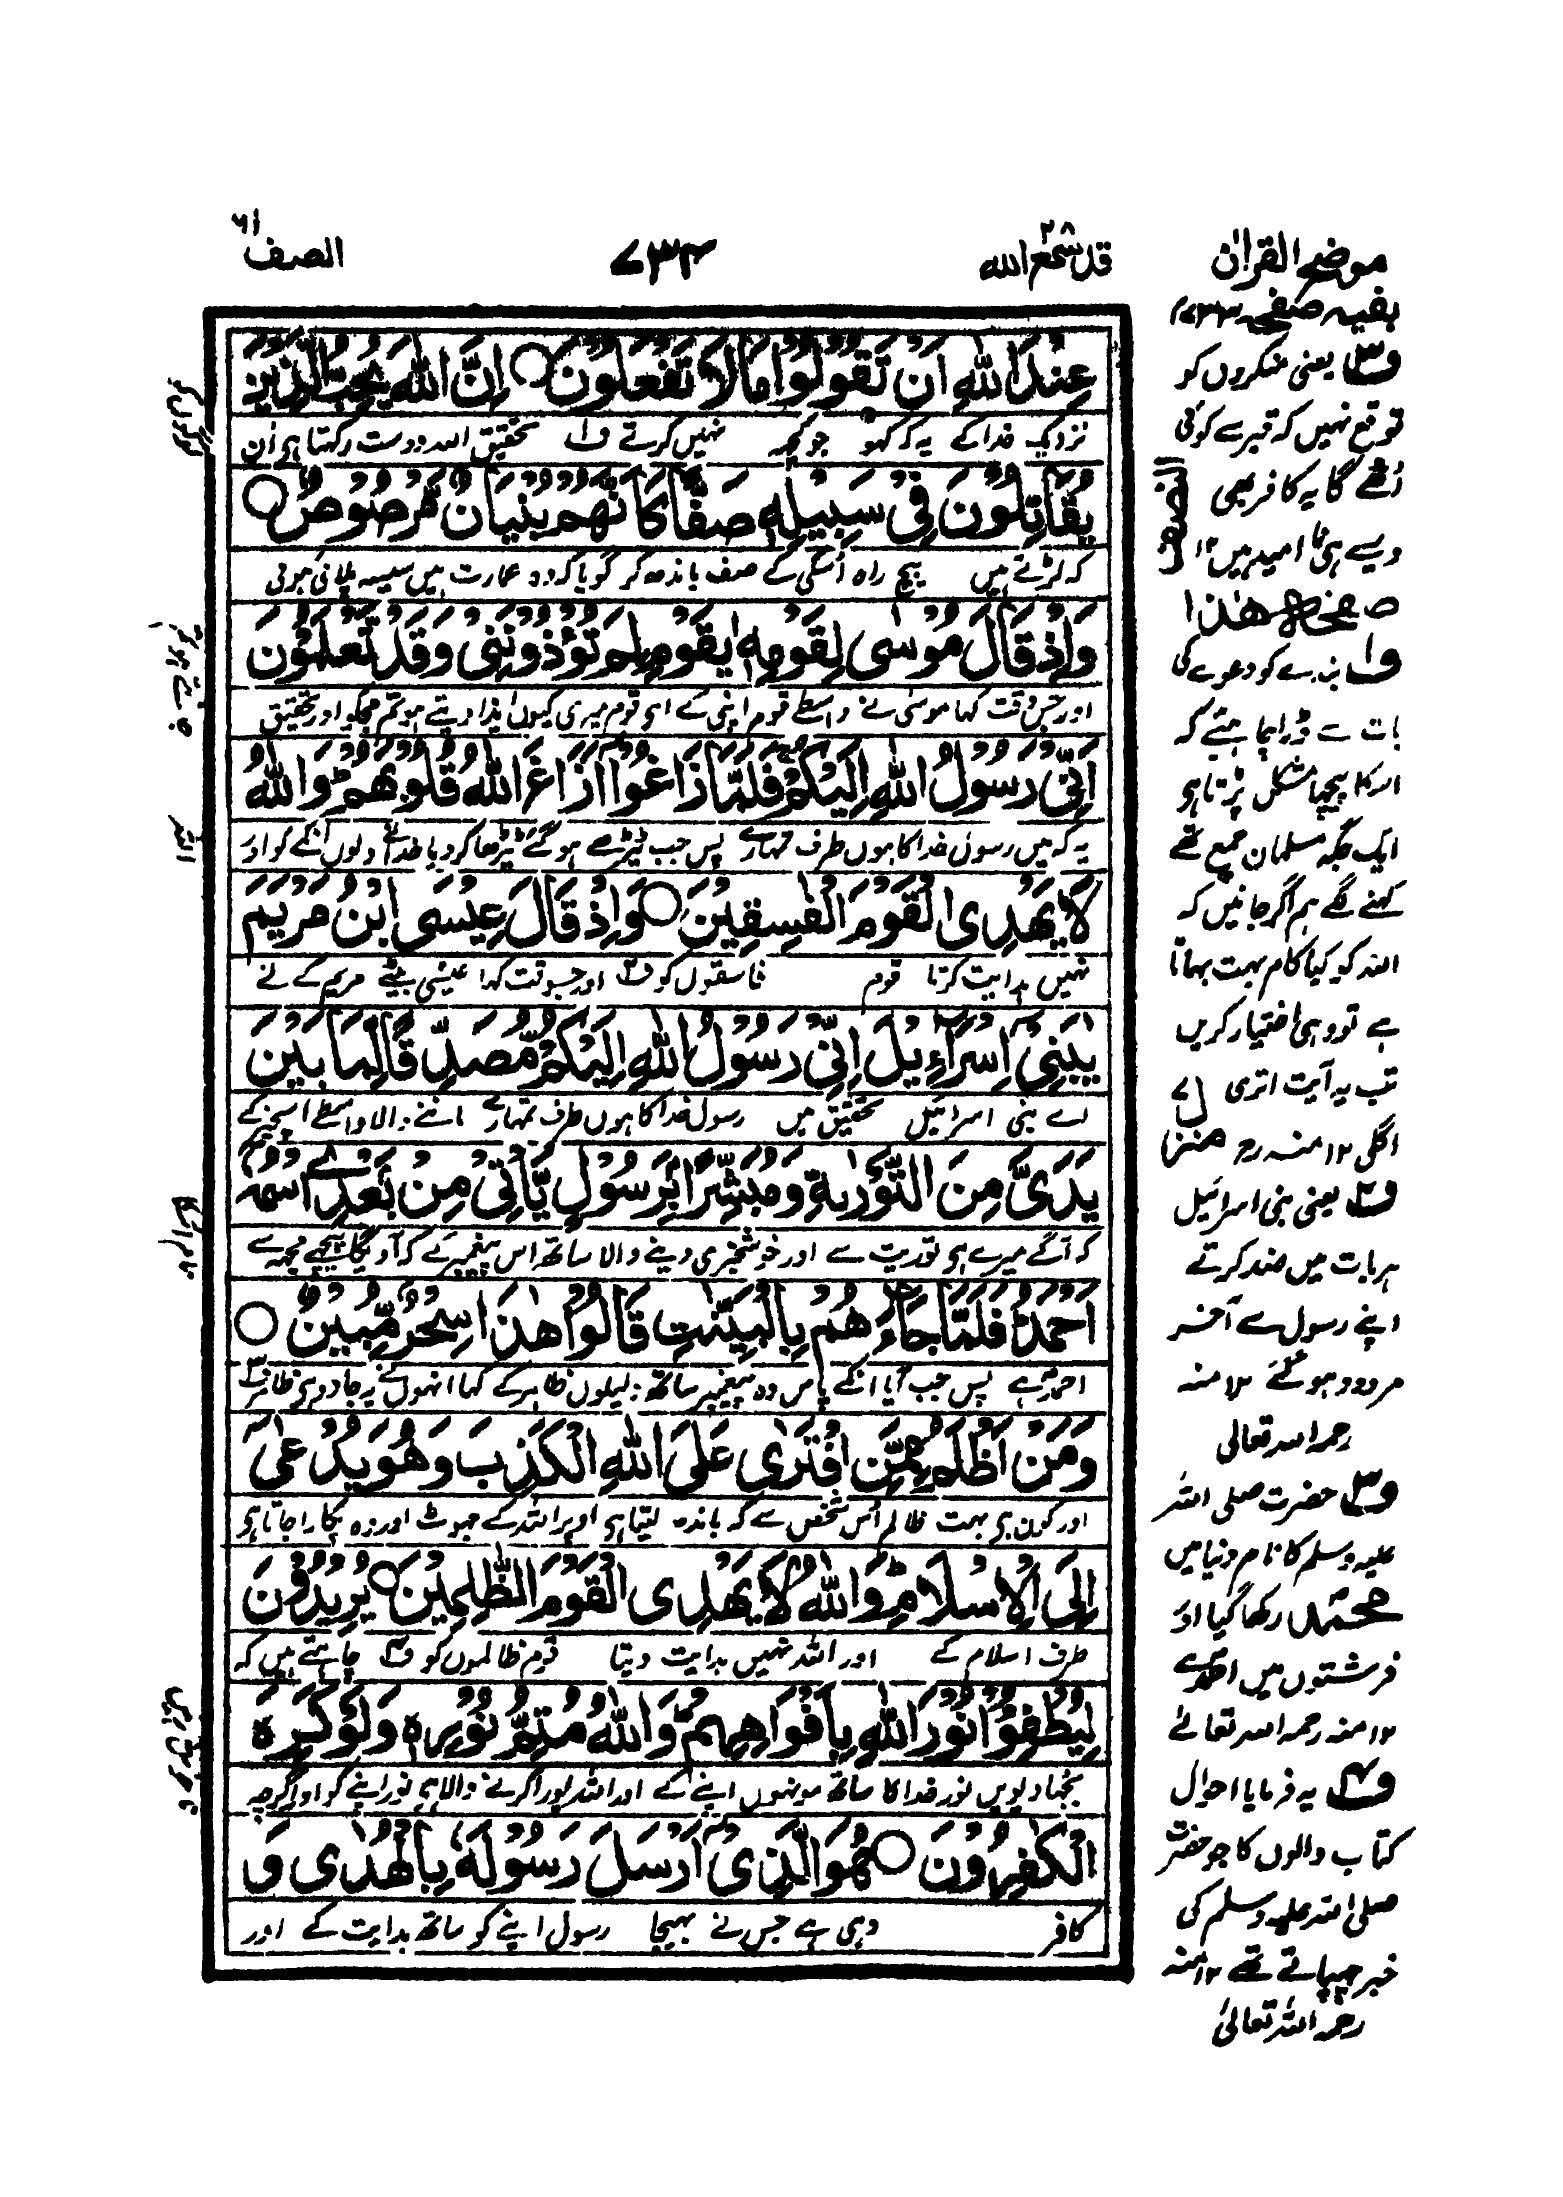 قد سمع الله ٢٨
٧٣٤
الصف ٦١
عِنْدَ اللّٰهِ اَنْ تَقُوْلُوْا مَا لَا تَفْعَلُوْنَ ○ اِنَّ اللّٰهَ يُحِبُّ الَّذِيْنَ
نزدیک خدا کے یہ کہ کہو جو کچھ نہیں کرتے ف۱ تحقیق اللہ دوست رکھتا ہی اُن
يُقَاتِلُوْنَ فِيْ سَبِيْلِهٖ صَفًّا كَاَنَّهُمْ بُنْيَانٌ مَّرْصُوْصٌ ○
کہ لڑتے ہیں بیچ راہ اُسکی کے صف باندھ کر گویا کہ وہ عمارت ہیں سیسہ پلائی ہوئی
وَاِذْ قَالَ مُوْسٰى لِقَوْمِهٖ يٰقَوْمِ لِمَ تُؤْذُوْنَنِيْ وَقَدْ تَّعْلَمُوْنَ
اور جس وقت کہا موسیٰ نے واسطے قوم اپنی کے ای قوم میری کیوں ایذا دیتے ہو تم مجکو اور تحقیق
اَنِّيْ رَسُوْلُ اللّٰهِ اِلَيْكُمْ فَلَمَّا زَاغُوْا اَزَاغَ اللّٰهُ قُلُوْبَهُمْ وَاللّٰهُ
یہ کہ میں رسول خدا کا ہوں طرف تمہارے پس جب ٹیڑھے ہو گئے ٹیڑھا کر دیا خدا نے دلوں اُنکے کو اور
لَا يَهْدِى الْقَوْمَ الْفٰسِقِيْنَ ○ وَاِذْ قَالَ عِيْسَى ابْنُ مَرْيَمَ
نہیں ہدایت کرتا قوم فاسقوں کو ف۲ اور جسوقت کہا عیسٰی بیٹے مریم کے نے
يٰبَنِيْ اِسْرَآءِيْلَ اِنِّيْ رَسُوْلُ اللّٰهِ اِلَيْكُمْ مُّصَدِّقًا لِّمَا بَيْنَ
اے بنی اسرائیل تحقیق میں رسول خدا کا ہوں طرف تمہارے ماننے والا واسطے اسچیز کے
يَدَيَّ مِنَ التَّوْرٰىةِ وَمُبَشِّرًا بِرَسُوْلٍ يَّاْتِيْ مِنْ بَعْدِى اسْمُهٗ
کہ آگے میرے ہی توریت سے اور خوشخبری دینے والا ساتھ اس پیغمبر کے کہ آویگا پیچھے مجھ سے
اَحْمَدُ فَلَمَّا جَآءَهُمْ بِالْبَيِّنٰتِ قَالُوْا هٰذَا سِحْرٌ مُّبِيْنٌ ○
احمد ہے پس جب آیا انکے پاس وہ پیغمبر ساتھ دلیلوں ظاہر کے کہا انہوں نے یہ جادو ہی ظاہر ف۳
وَمَنْ اَظْلَمُ مِمَّنِ افْتَرٰى عَلَى اللّٰهِ الْكَذِبَ وَهُوَ يُدْعٰى
اور کون ہی بہت ظالم اُس شخص سے کہ باندھ لیتا ہی اوپر اللہ کے جھوٹ اور وہ پکارا جاتا ہی
اِلَى الْاِسْلَامِ وَاللّٰهُ لَا يَهْدِى الْقَوْمَ الظّٰلِمِيْنَ ○ يُرِيْدُوْنَ
طرف اسلام کے اور اللہ نہیں ہدایت دیتا قوم ظالموں کو ف۴ چاہتے ہیں کہ
لِيُطْفِؤُا نُوْرَ اللّٰهِ بِاَفْوَاهِهِمْ وَاللّٰهُ مُتِمُّ نُوْرِهٖ وَلَوْ كَرِهَ
بجھا دیویں نور خدا کا ساتھ مونہوں اپنے کے اور اللہ پورا کرنے والا ہی نور اپنے کو اور اگرچہ
الْكٰفِرُوْنَ ○ هُوَ الَّذِيْ اَرْسَلَ رَسُوْلَهٗ بِالْهُدٰى وَ
کافر وہی ہے جس نے بھیجا رسول اپنے کو ساتھ ہدایت کے اور
موضح القرآن
بقیہ صفحہ ۷۳۳
ف۳ یعنی منکروں کو
توقع نہیں کہ قبر سے کوئی
اُٹھے گا یہ کافر بھی
ویسے ہی نا امید ہیں ۱۲
الصف
صفحہ ھٰذا
ف۱ بندے کو دعوے کی
بات سے ڈرا چاہئے کہ
اسکا پیچھا مشکل پڑتا ہی
ایک جگہ مسلمان جمع تھے
کہنے لگے ہم اگر جانیں کہ
اللہ کو کیا کام بہت بھاتا
ہے تو وہی اختیار کریں
تب یہ آیت اتری
اگلی ۱۲ منہ رح
ف۲ یعنی بنی اسرائیل
ہر بات میں ضد کرتے
اپنے رسول سے آخر
مردود ہو گئے ۱۲ منہ
رحمہ اللہ تعالی
ف۳ حضرت صلی اللہ
علیہ وسلم کا نام دنیا میں
محمد رکھا گیا اور
فرشتوں میں احمد ہے
۱۲ منہ رحمہ اللہ تعالےٰ
ف۴ یہ فرمایا احوال
کتاب والوں کا جو حضرت
صلی اللہ علیہ وسلم کی
خبر چھپاتے تھے ۱۲ منہ
رحمہ اللہ تعالیٰ